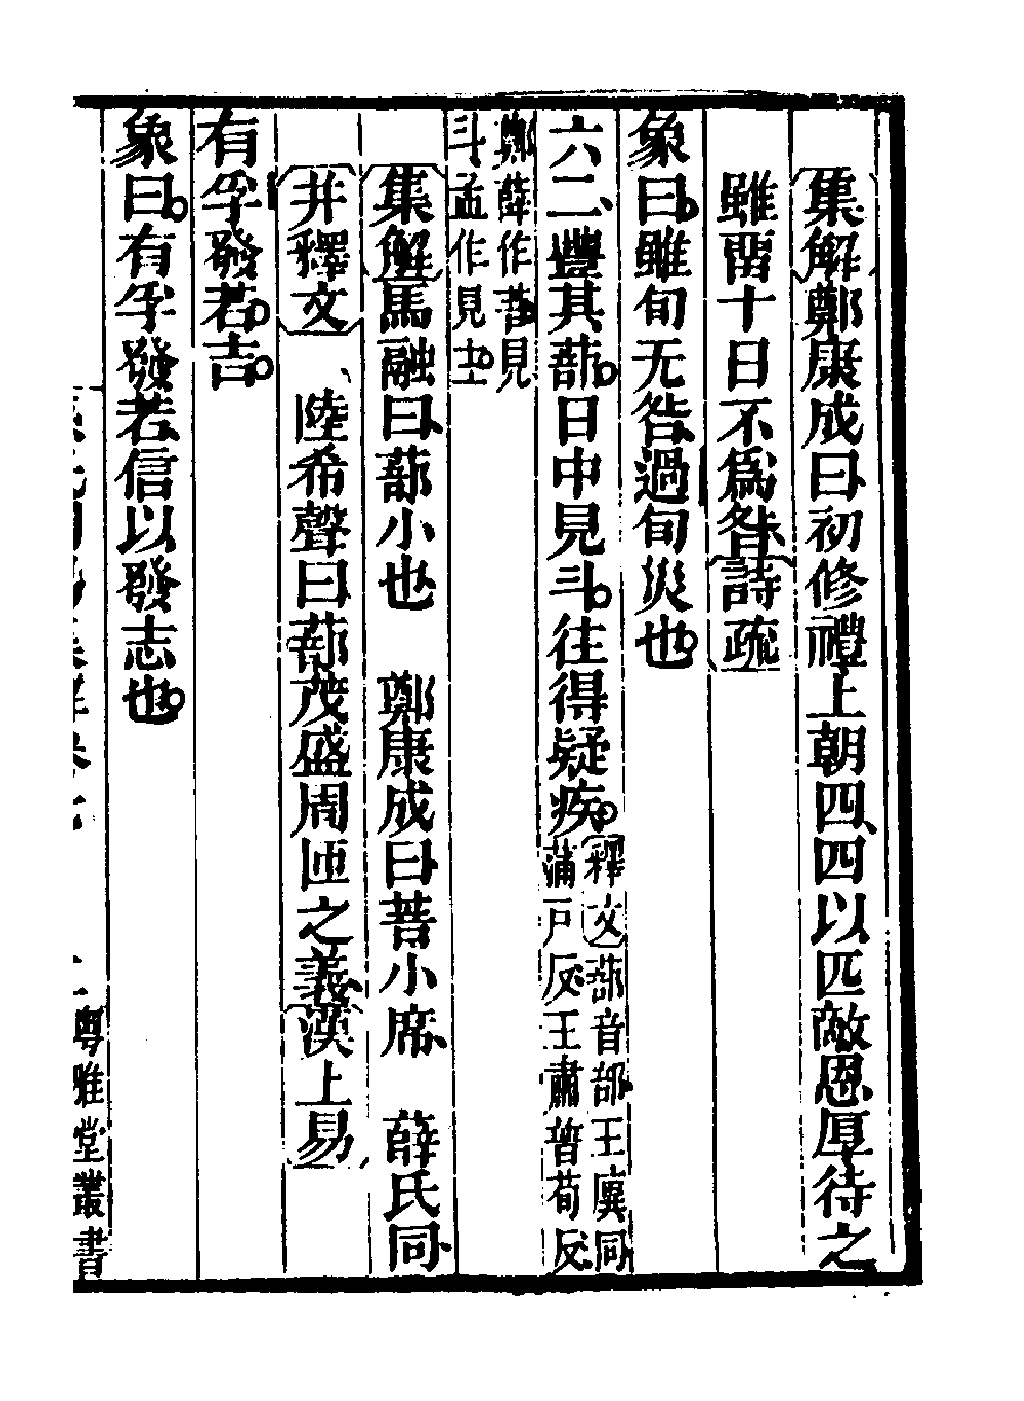 集解鄭康成曰初修禮上朝四四以匹敵恩厚待之
雖留十日不爲咎詩疏
象曰雖旬无咎過旬災也
六二豐其蔀日中見斗往得疑疾釋文蔀音部王廙同
蒲戶反王肅普苟反
鄭薛作菩見
斗孟作見主
集解馬融曰蔀小也　鄭康成曰菩小席　薛氏同
并釋文　陸希聲曰蔀茂盛周匝之義漢上易
有孚發若吉
象曰有孚發若信以發志也
粵雅堂叢書